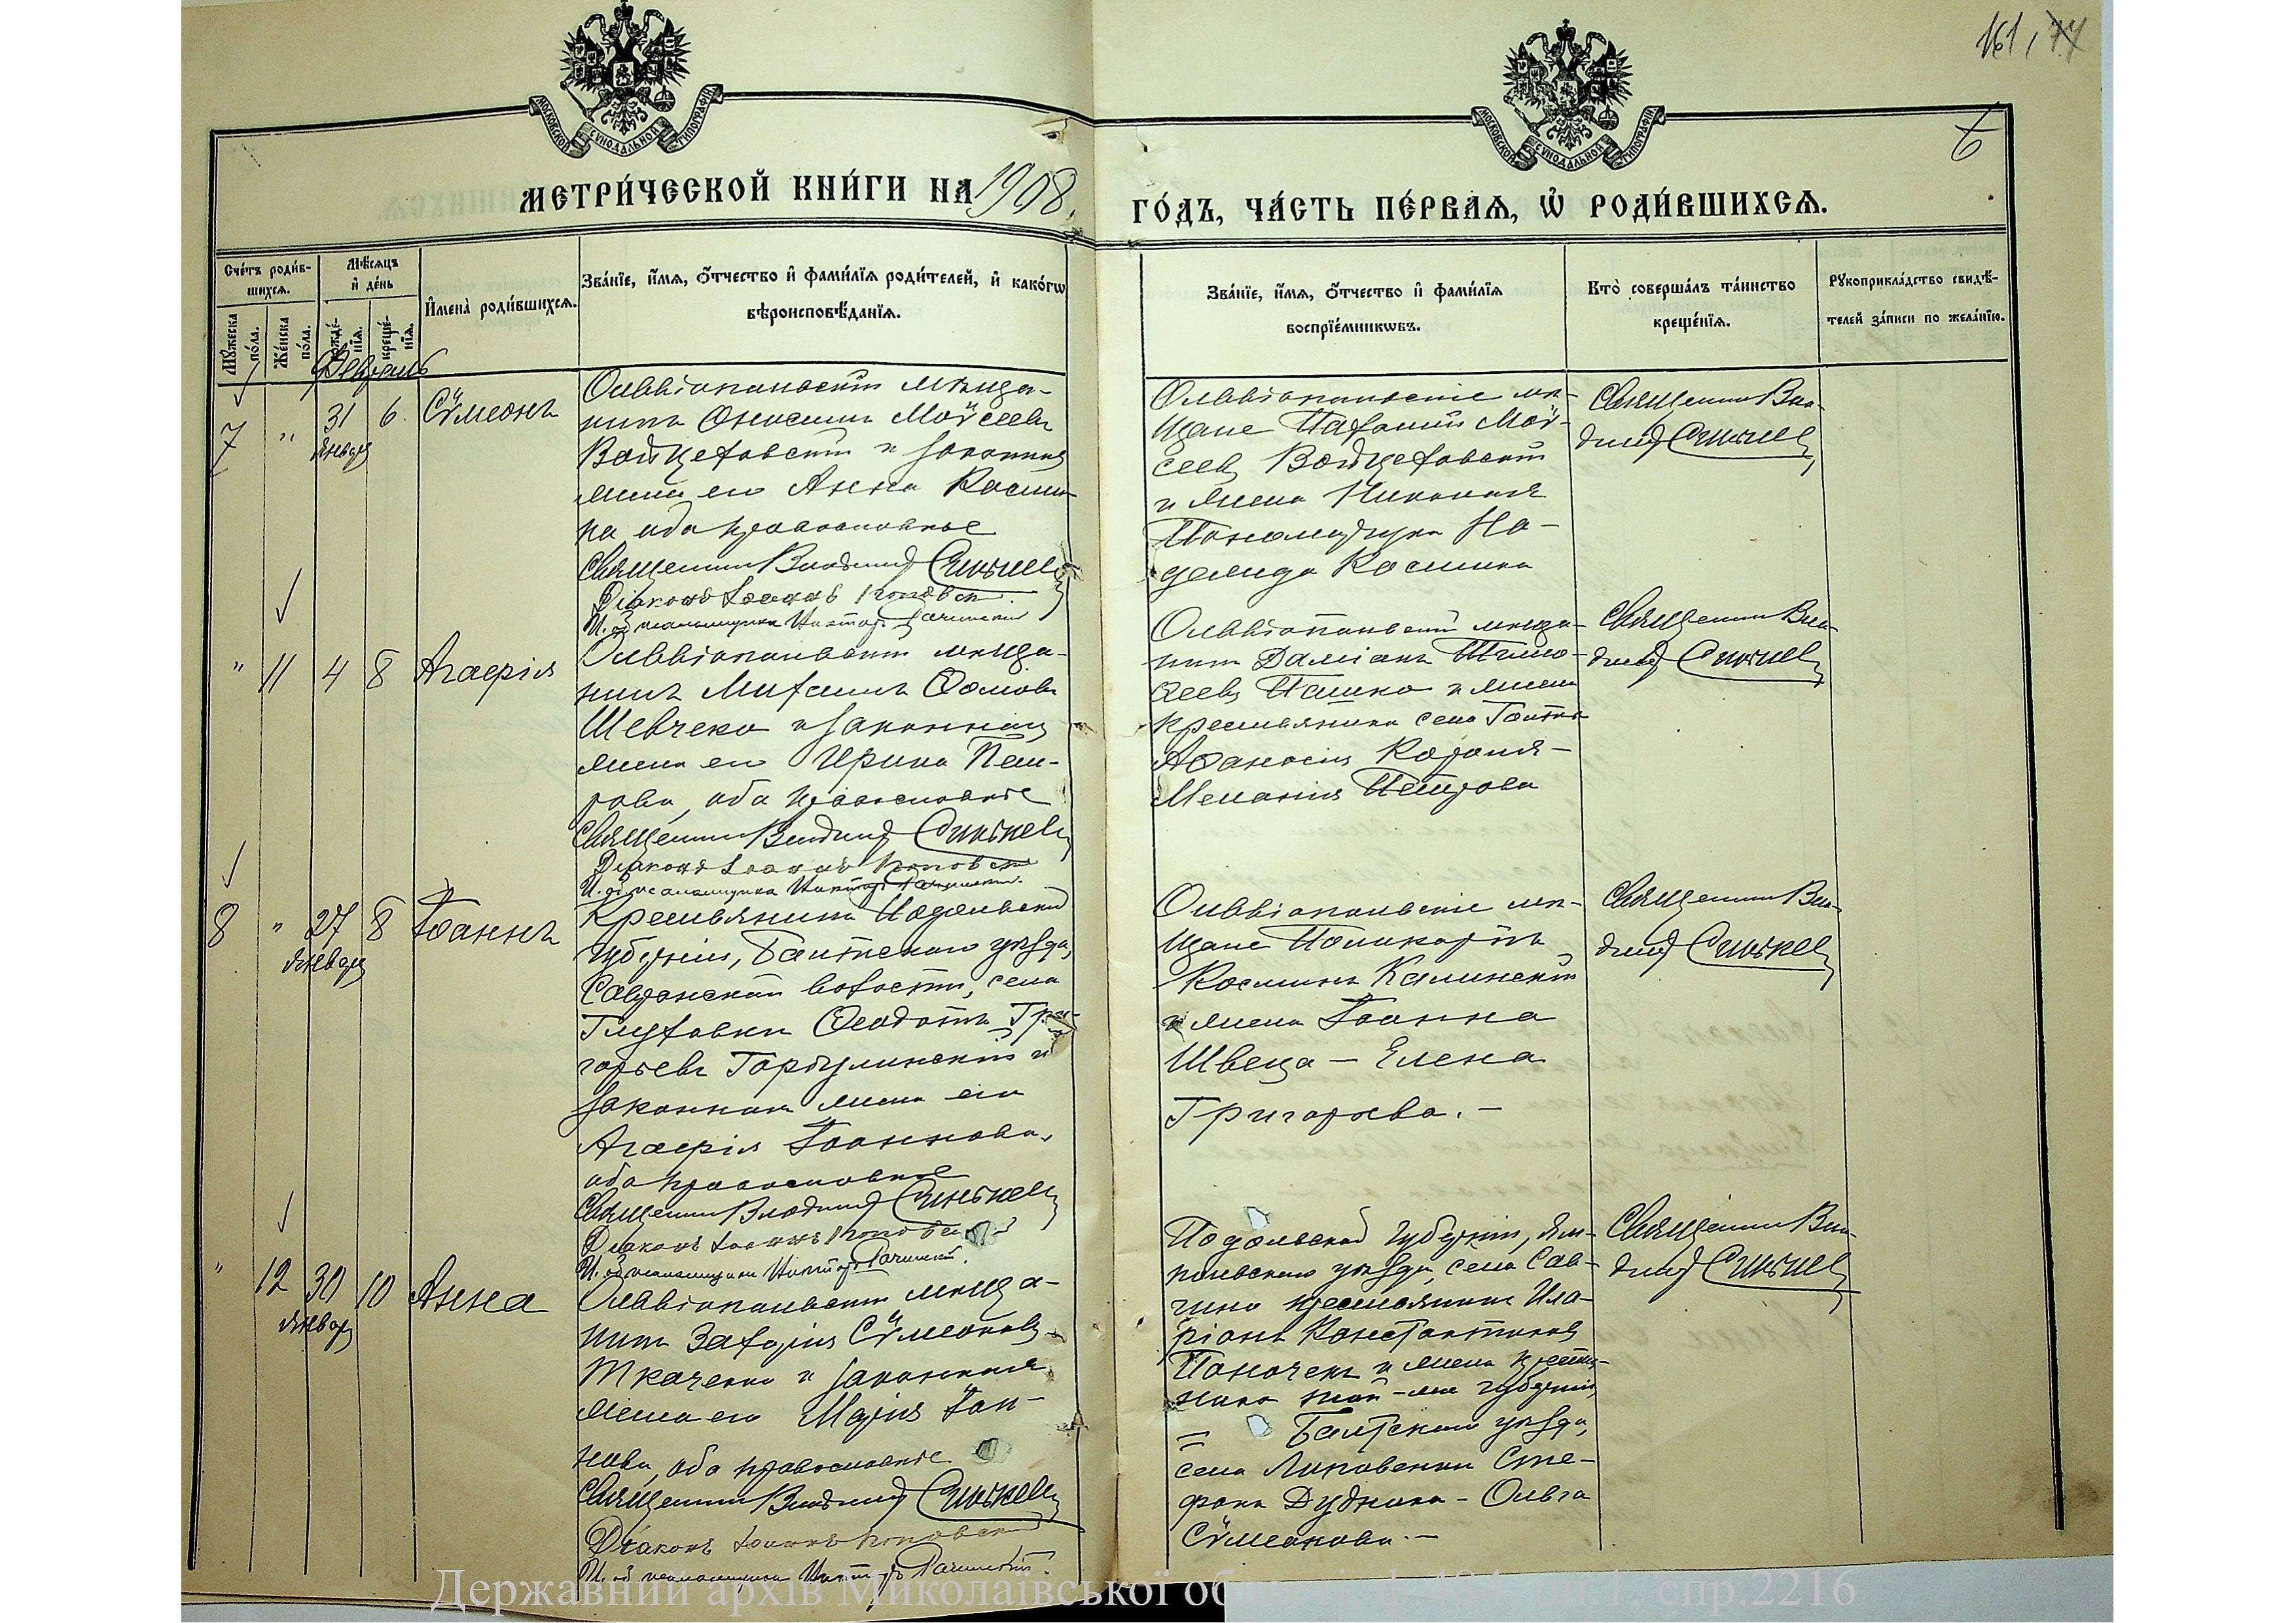 161, 74
6
МОСКОВСКОЙ СУНОДАЛЬНОЙ ТИПОГРАФІИ
МОСКОВСКОЙ СУНОДАЛЬНОЙ ТИПОГРАФІИ
МЕТРИ́ЧЕСКОЙ КНИ́ГИ НА 1908.
ГО́ДЪ, ЧА́СТЬ ПЕ́РВАѦ, Ѽ РОДИ́ВШИХСѦ.
Сче́тъ роди́в-
шихсѧ.
Мꙋ́жеска
по́ла.
Же́нска
по́ла.
Мѣ́сѧцъ
и҆ де́нь
рожде́-
нїѧ.
креще́-
нїѧ.
И҆мена̀ роди́вшихсѧ.
Зва́нїе, и҆́мѧ, ѻ҆́тчество и҆ фами́лїѧ роди́телей, и҆ како́гѡ
вѣроисповѣ́данїѧ.
Зва́нїе, и҆́мѧ, ѻ҆́тчество и҆ фами́лїѧ
воспрїе́мникѡвъ.
Кто̀ соверша́лъ та́инство
креще́нїѧ.
Рꙋкоприкла́дство свидѣ́-
телей за́писи по жела́нїю.
Февраль
7 " 31 6. Сѷмеонъ
января
Ольвіопольскій мѣща-
нинъ Онисимъ Моѷсеевъ
Войцеховскій и законная
жена его Анна Косми-
на оба православные
Священникъ Владимір Синькев
Діаконъ Іоаннъ Поповскі
И. об. псаломщика Виктор Рачинскій
Ольвіопольскіе мѣ-
щане Пафотій Моѷ-
сеевъ Войцеховскій
и жена Николая
Пономарчука На-
дежда Космина
Священникъ Вла-
димір Синькев
" 11 4 8 Агаѳрія
Ольвіопольскій мѣща-
нинъ Михаилъ Ѳомовъ
Шевчеко и законная
жена его Ирина Пет-
рова, оба православные
Священникъ Владимір Синькев
Діаконъ Іоаннъ Поповскі
И. об. псаломщика Виктор Рачинскій.
Ольвіопольскій мѣща-
нинъ Даміанъ Тимо-
ѳеевъ Пашко и жена
крестьянина села Голты
Аѳанасія Короля-
Меланія Петрова
Священникъ Вла-
димір Синькев
8 " 27 8 Іоаннъ
января
Крестьянинъ Подольской
губерніи, Балтскаго уѣзда,
Савранской волости, села
Глубокой Ѳеодотъ Гри-
горьевъ Горбулинскій и
законная жена его
Агаѳрія Іоаннова,
оба православные
Священникъ Владимір Синькев
Діаконъ Іоаннъ Поповскій
И. об. псаломщика Виктор Рачинскій.
Ольвіопольскіе мѣ-
щане Поликарпъ
Косминъ Калинскій
и жена Іоанна
Швеца — Елена
Григорьева. —
Священникъ Вла-
димір Синькев
" 12 30 10 Анна
январ
Ольвіопольскій мѣща-
нинъ Захарія Сѷмеоновъ
Ткаченко и законная
жена его Марія Іоан-
нова, оба православные
Священникъ Владимір Синькев
Діаконъ Іоаннъ Поповскій
И. об. псаломщика Виктор Рачинскій.
Подольской губерніи, Ям-
польскаго уѣзда, села Сав-
чино крестьянинъ Ила-
ріонъ Константиновъ
Паночекъ и жена крестья-
нина той-же губерніи,
= Балтскаго уѣзда,
села Липовенки Сте-
фана Дудника - Ольга
Сѷмеонова. —
Священникъ Вла-
димір Синькев
Державний архів Миколаївської спр.2216